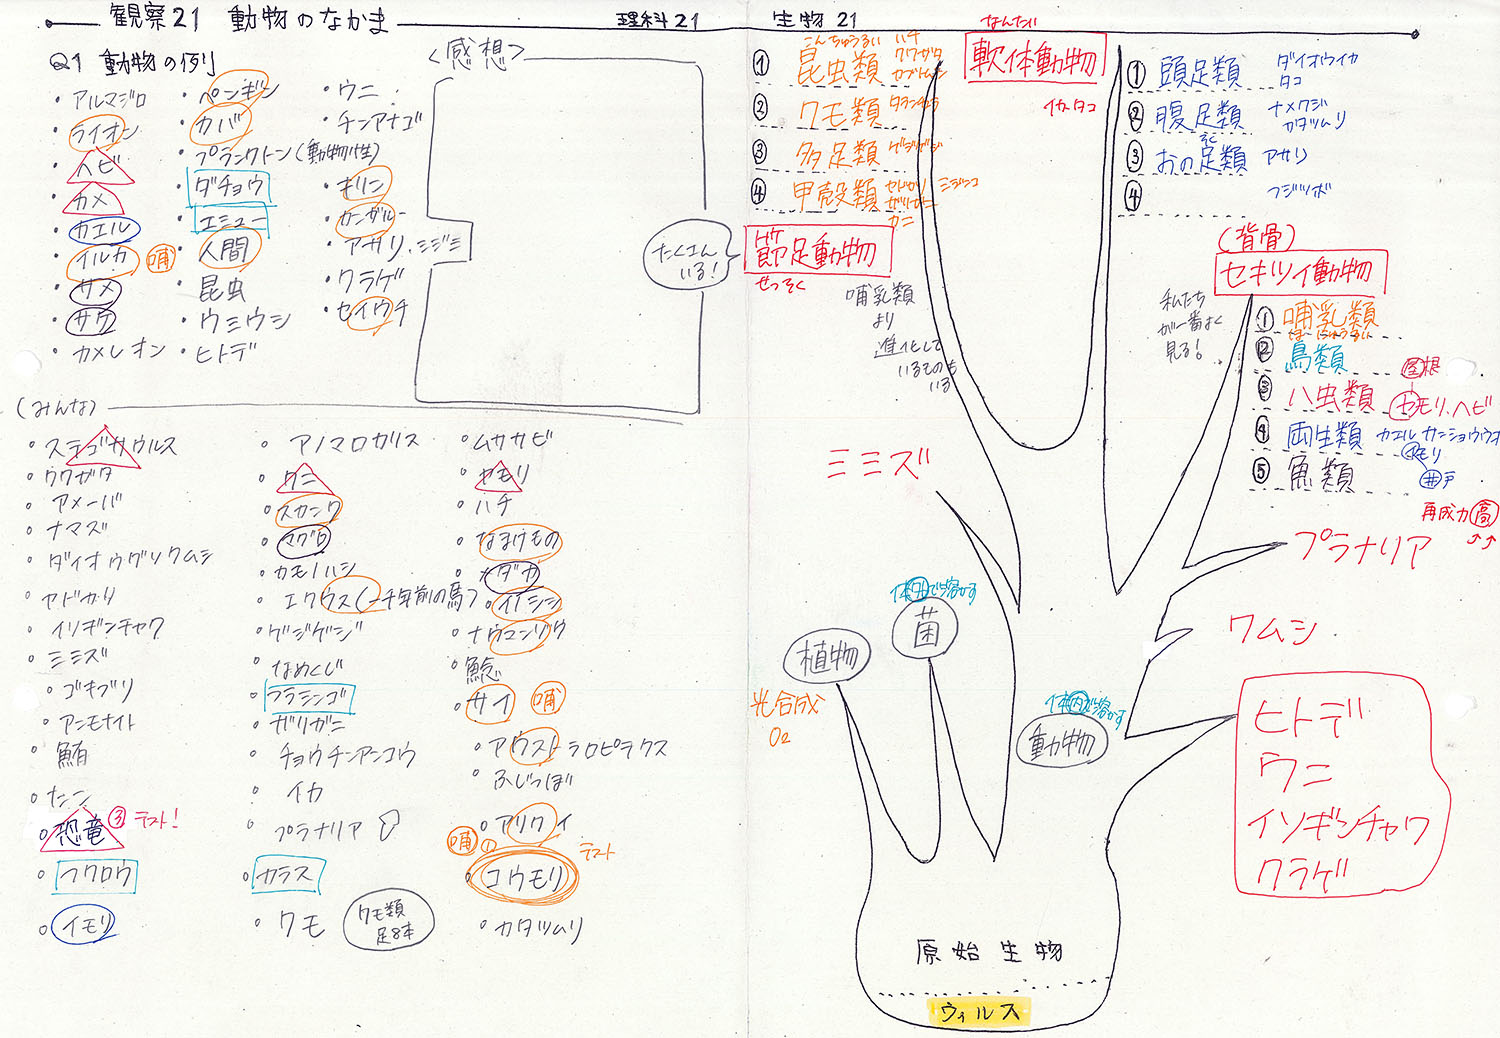 観察21 動物のなかま
理科21
生物21
Q1 動物の例
・アルマジロ
・ライオン
・ヘビ
・カメ
・カエル
・イルカ 哺
・サメ
・サケ
・カメレオン
・ペンギン
・カバ
・プランクトン(動物性)
・ダチョウ
・エミュー
・人間
・昆虫
・ウミウシ
・ヒトデ
・ウニ
・チンアナゴ
・キリン
・カンガルー
・アサリ、シジミ
・クラゲ
・セイウチ
<感想>
(みんな)
・ステゴサウルス
・クワガタ
・アメーバ
・ナマズ
・ダイオウグソクムシ
・ヤドカリ
・イソギンチャク
・ミミズ
・ゴキブリ
・アンモナイト
・鮪
・たこ
・恐竜 ③ テスト!
・フクロウ
・イモリ
・アノマロカリス
・ワニ
・スカンク
・マグロ
・カモノハシ
・エクウス(一千年前の馬)
・ゲジゲジ
・なめくじ
・フラミンゴ
・ザリガニ
・チョウチンアンコウ
・イカ
・プラナリア
・カラス
・クモ
クモ類
足8本
・ムササビ
・ヤモリ
・ハチ
・なまけもの
・メダカ
・イノシシ
・ナウマンゾウ
・鯰
・サイ 哺
・アウストラロピテクス
・ふじつぼ
・アリクイ
哺 ① テスト
・コウモリ
・カタツムリ
こんちゅうるい ハチ
① 昆虫類 クワガタ
カブトムシ
② クモ類 タランチュラ
③ 多足類 ゲジゲジ
④ 甲殻類 ヤドカリ ミジンコ
ザリガニ
カニ
たくさん
いる!
節足動物
せっそく
哺乳類
より
進化して
いるものも
いる
なんたい
軟体動物
イカ、タコ
① 頭足類 ダイオウイカ
タコ
② 腹足類 ナメクジ
カタツムリ
③ おの足類 アサリ
そく
④ フジツボ
(背骨)
セキツイ動物
私たち
が一番よく
見る!
① 哺乳類
ほにゅうるい
② 鳥類
③ ハ虫類 ヤモリ、ヘビ
屋根
④ 両生類 カエル サンショウウオ
イモリ
井戸
⑤ 魚類
再成力高
プラナリア
ミミズ
ワムシ
体外で溶かす
菌
植物
光合成
O2
体内で溶かす
動物
ヒトデ
ウニ
イソギンチャク
クラゲ
原始生物
ウィルス